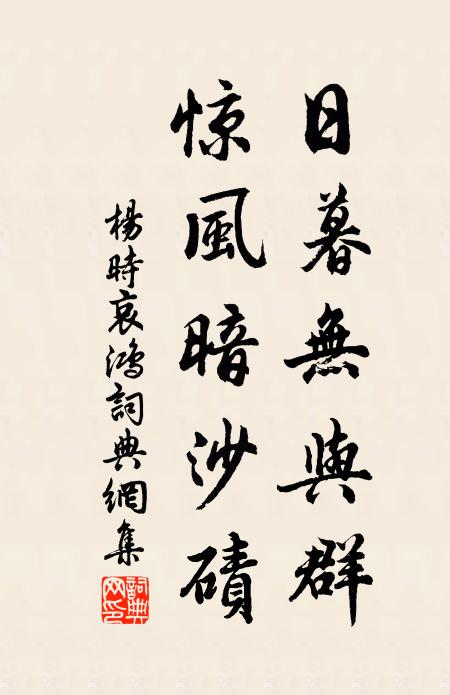 日暮無與群
惊風暗沙磧
楊時哀鴻詞典網集
詞典
网印